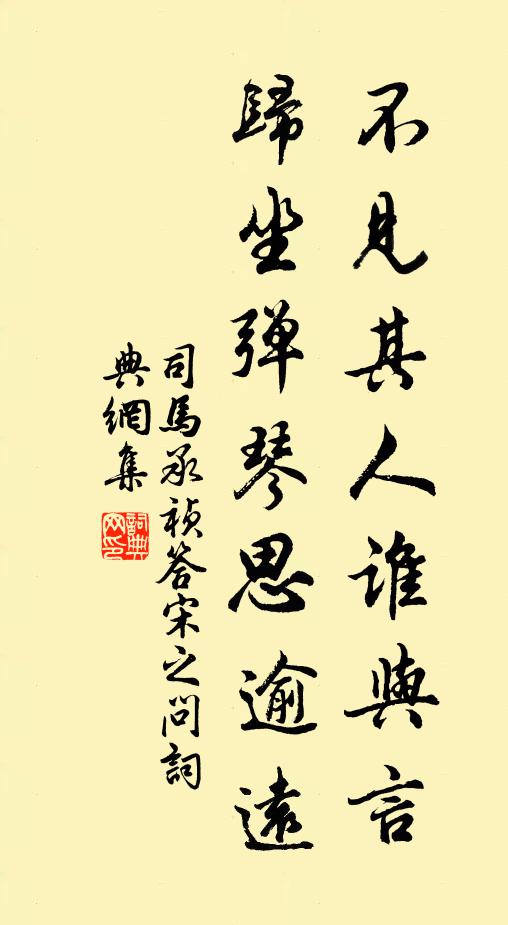 不見其人誰與言
歸坐彈琴思逾遠
司馬承禎答宋之問詞
典網集
詞典
网印